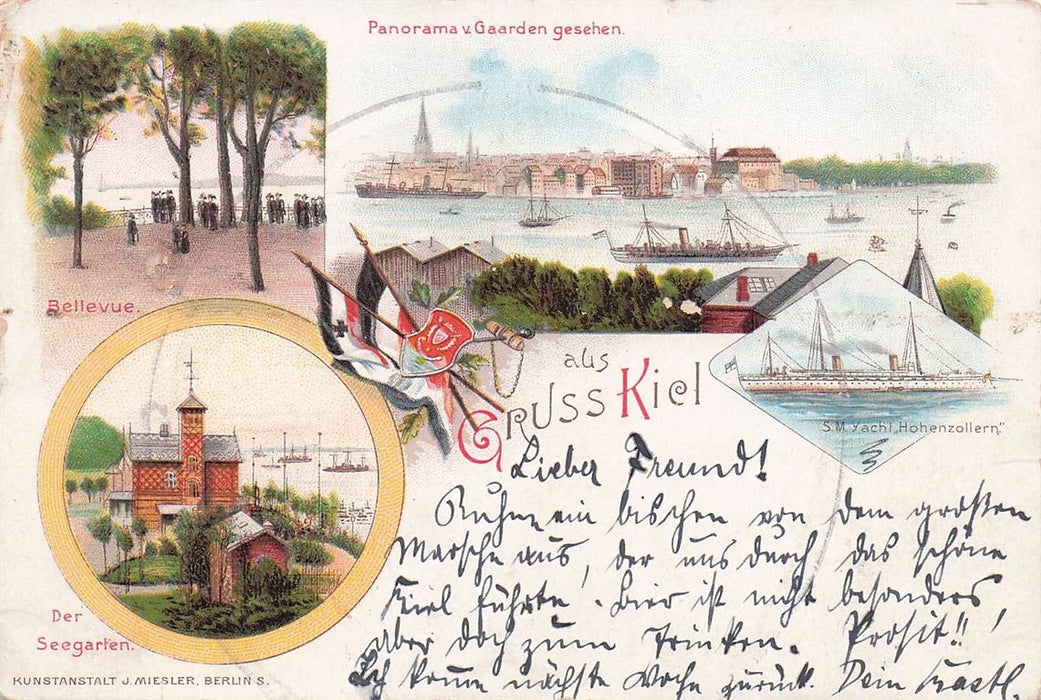 Panorama v. Gaarden gesehen.
Bellevue.
Gruss aus Kiel
S.M. Yacht „Hohenzollern."
Der
Seegarten.
Lieber Freund!
Ruhn ein bischen von dem großen
Marsche aus, der uns durch das schöne
Kiel führte. Bier ist nicht besonders,
aber doch zum Trinken. Prosit!!
Ich komme nächste Woche zurück. Dein
KUNSTANSTALT J. MIESLER, BERLIN S.